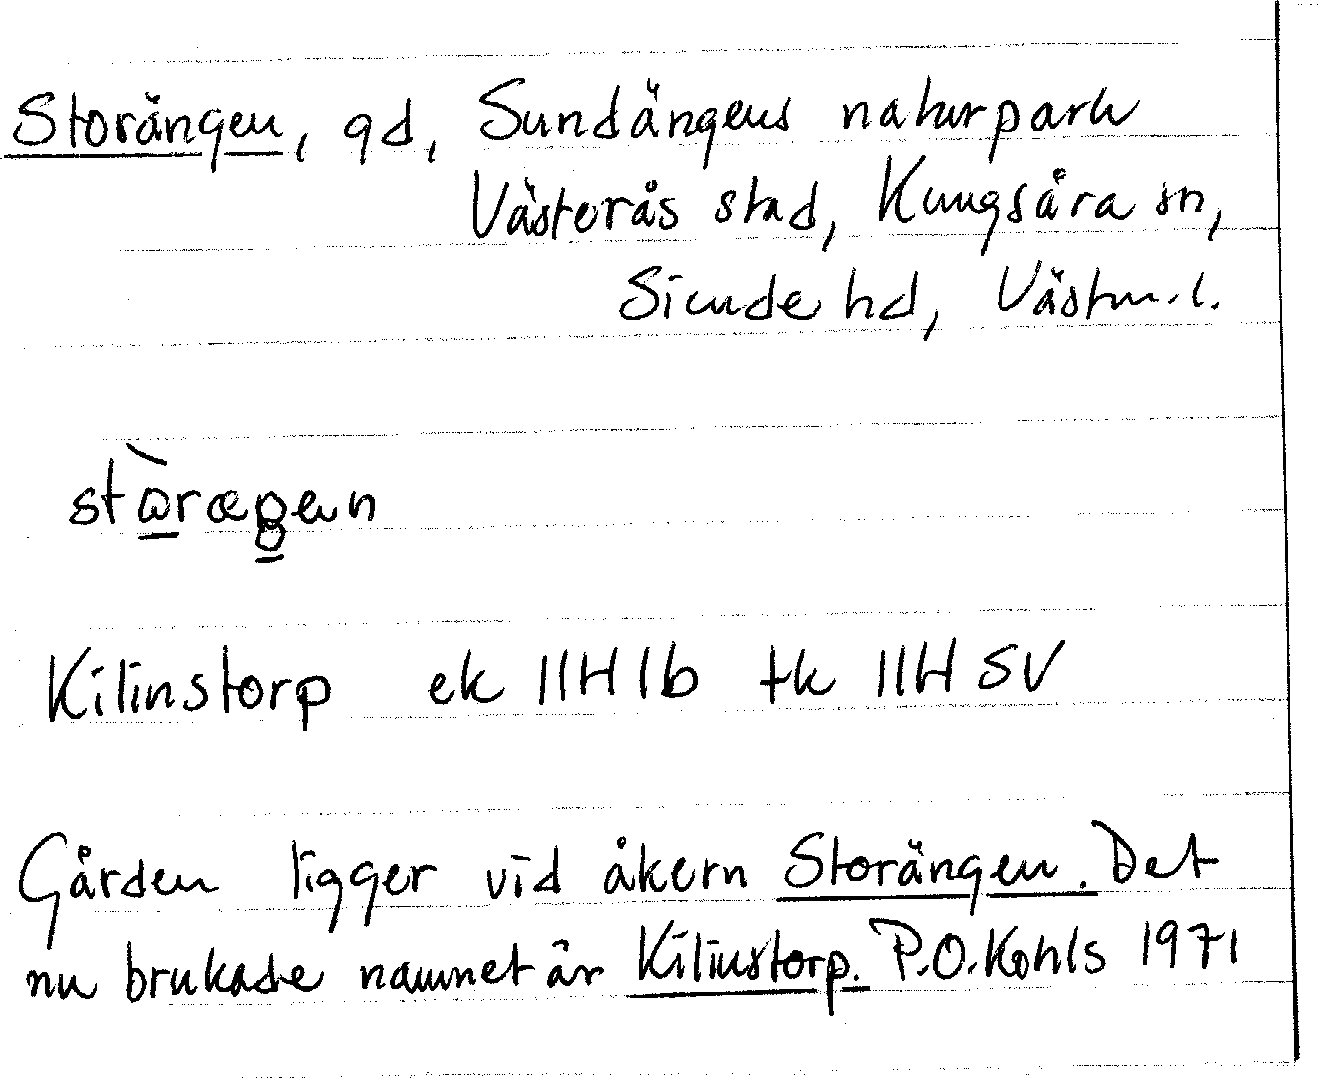 Storängen, gd, Sundängens naturpark
Västerås stad, Kungsåra sn,
Siende hd, Västm.l.
Kilinstorp ek 11H1b tk 11H SV
Gården ligger vid åkern Storängen. Det
nu brukade namnet är Kilinstorp. P.O. Kohls 1971